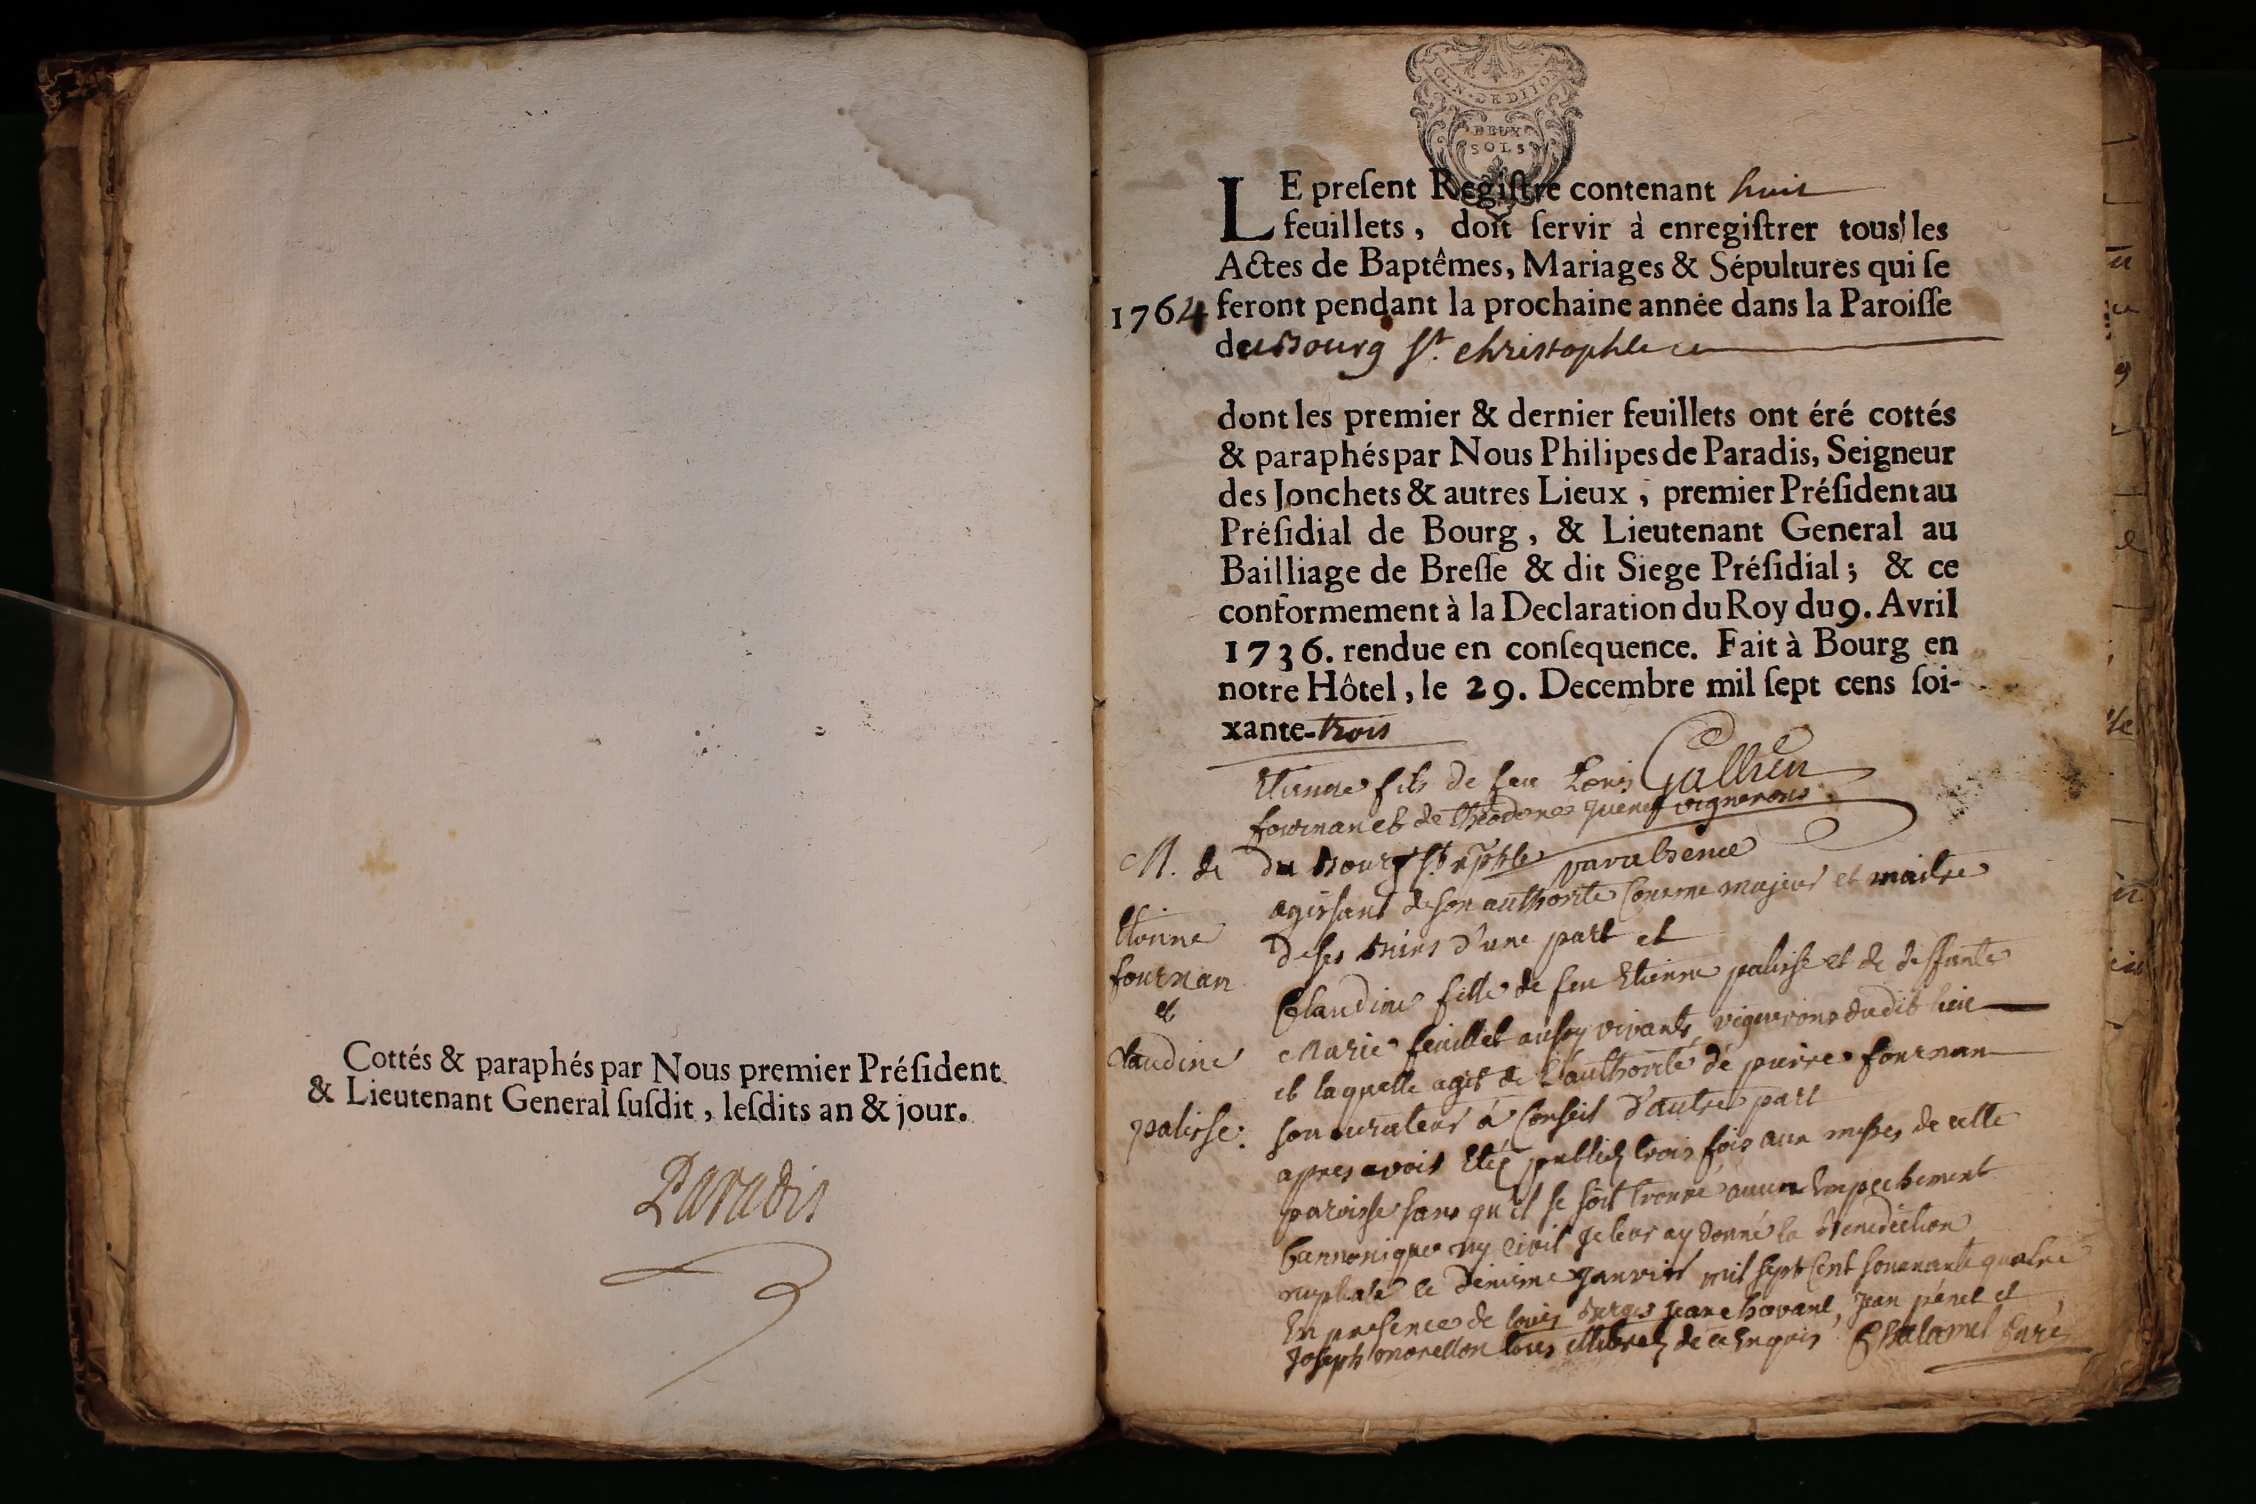 Cottés & paraphés par Nous premier Préſident
& Lieutenant General ſuſdit, leſdits an & jour.
Paradis
GEN. DE DIJON
DEUX
SOLS
LE preſent Regiſtre contenant huit
feuillets, doit ſervir à enregiſtrer tous les
Actes de Baptêmes, Mariages & Sépultures qui ſe
1764 feront pendant la prochaine année dans la Paroiſſe
de Bourg St. christophle
dont les premier & dernier feuillets ont éré cottés
& paraphés par Nous Philipes de Paradis, Seigneur
des Jonchets & autres Lieux, premier Préſident au
Préſidial de Bourg, & Lieutenant General au
Bailliage de Breſſe & dit Siege Préſidial; & ce
conformement à la Declaration du Roy du 9. Avril
1736. rendue en conſequence. Fait à Bourg en
notre Hôtel, le 29. Decembre mil ſept cens ſoi-
xante-trois
Gallien
par absence
M. de
Etienne
fournan
et
Claudine
palisse.
Etienne fils de feu Louis
fournan et de vignerons
du Bourg St.
agissant de son authorite comme majeur et maitre
de ses biens d'une part et
Claudine fille de feu Etienne palisse et de deffunte
Marie feuillet vivants vignerons dudit lieu
et laquelle agit de l'authorité de pierre fournan
son curateur a Conseil d'autre part
apres avoir Eté publiez trois fois aux messes de cette
paroisse sans qu'il se soit trouvé aucun Empechement
Cannonique ny Civil Je leur ay donné la Benediction
nuptiale le janvier mil sept Cent soixante quatre
En presence de louis Jean Jean pénet et
Joseph morellon tous illitrez de ce Enquis Chalamel Curé